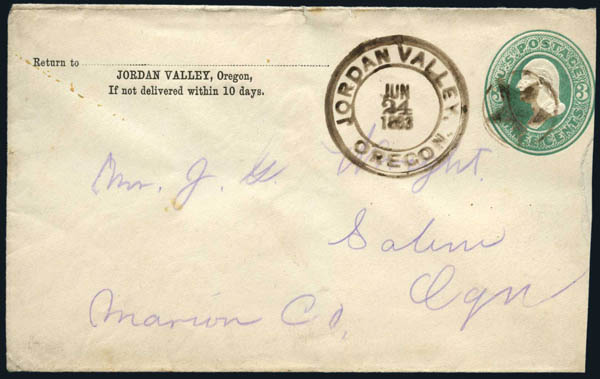 Return to
JORDAN VALLEY, Oregon,
If not delivered within 10 days.
JORDAN VALLEY,
JUN
24
1883
OREGON.
U.S. POSTAGE
3 3
CENTS
Mr. J. G. Wright.
Salem
Ogn
Marion Co,